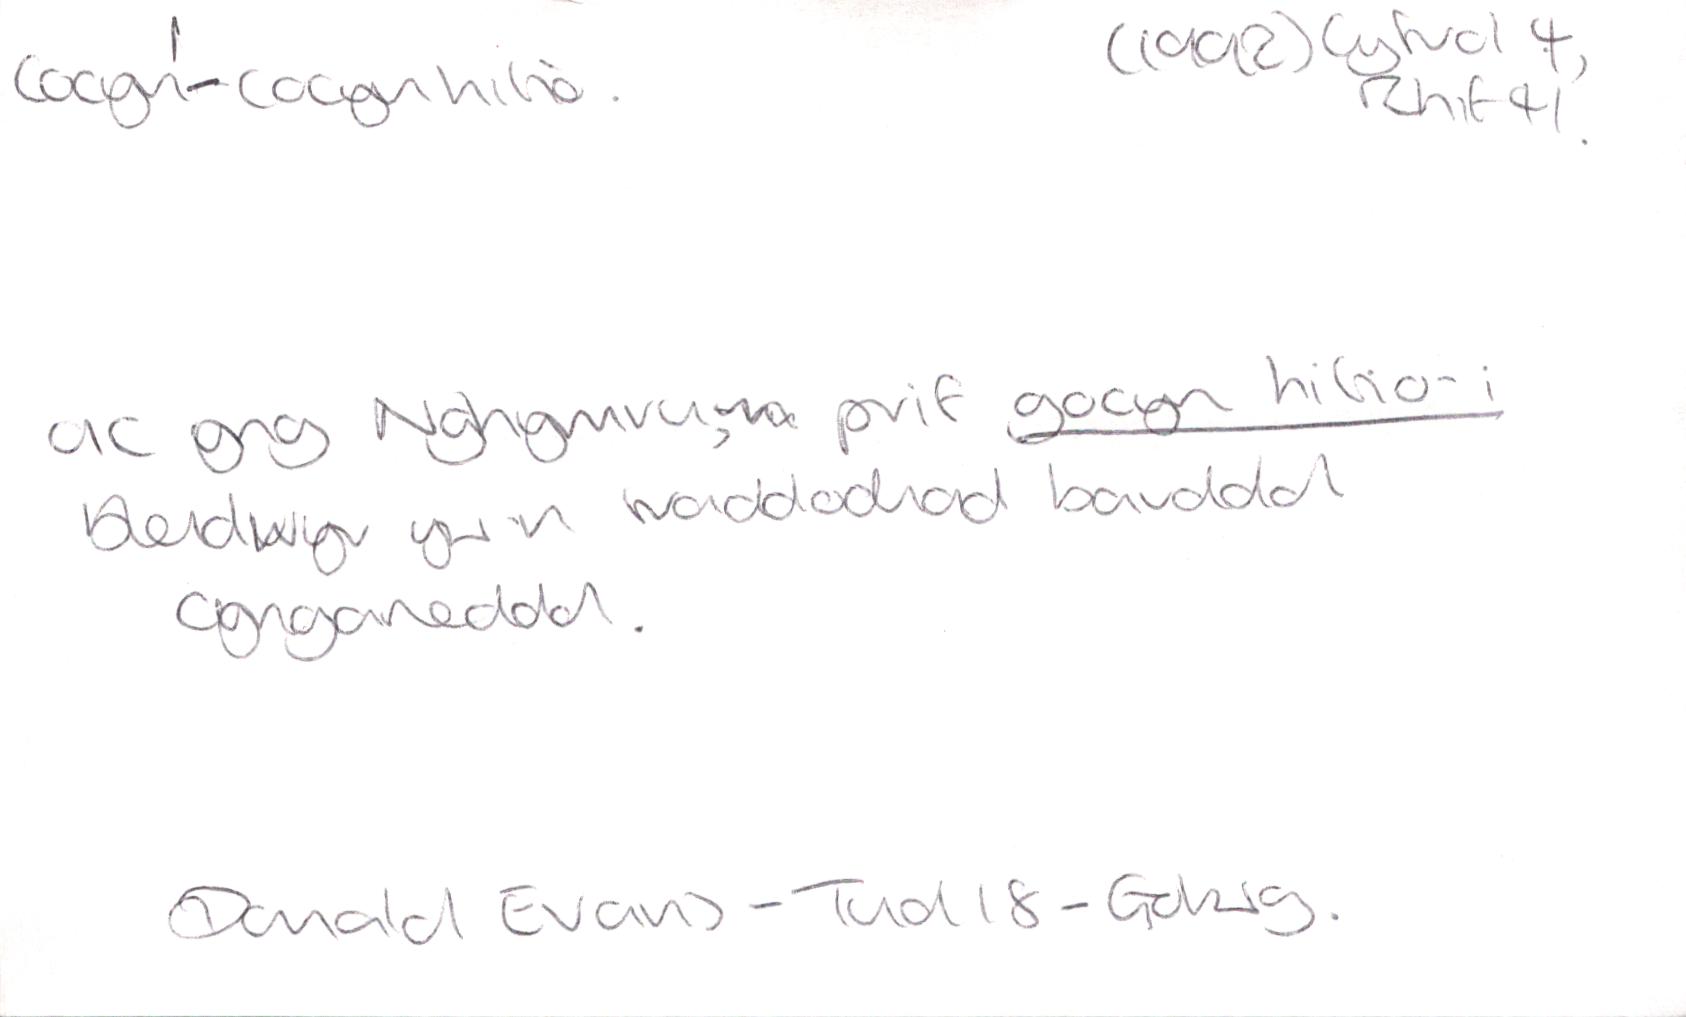 cocyn¹ - cocyn hitio.
(1992) Cyfrol 4,
Rhif 41.
ac yng Nghymru, prif gocyn hitio - i
yw'n traddodiad barddol
cynganeddol.
Donald Evans - Tud 18 - Golwg.